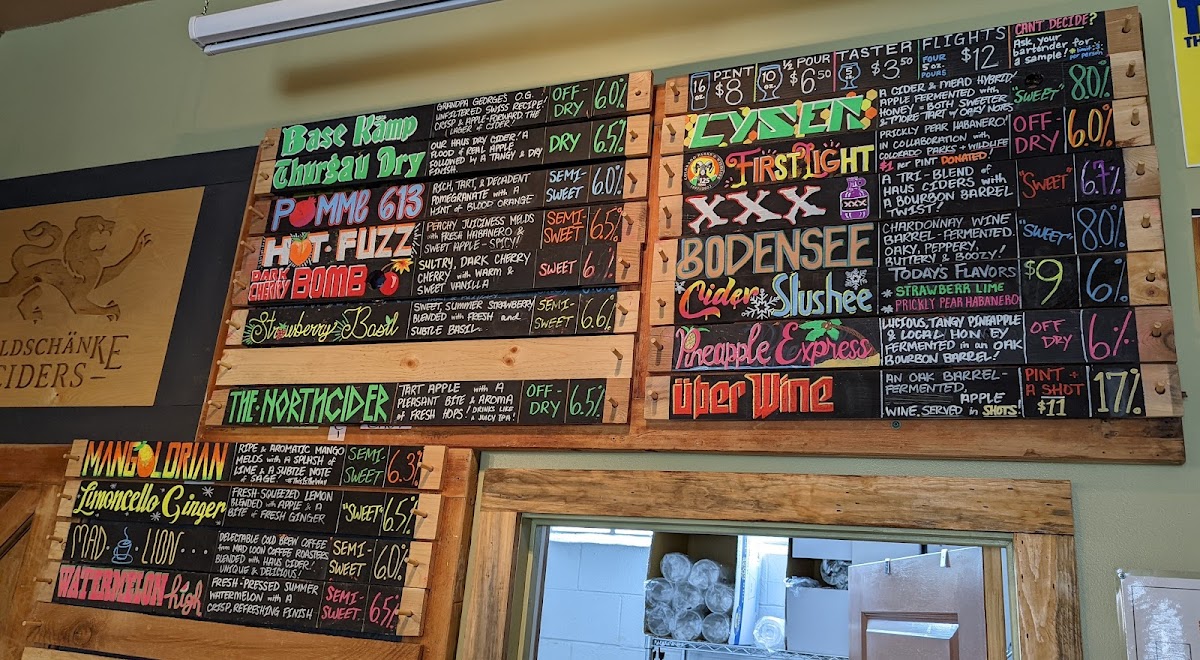 LDSCHÄNKE
CIDERS
Base Kamp
GRANDPA GEORGE'S O.G.
UNFILTERED SWISS RECIPE!
CRISP & APPLE-FORWARD. THE
LAGER of CIDER!
OFF-
DRY
6.0%
Thurgau Dry
OUR HAUS DRY CIDER! A
FLOOD of REAL APPLE
FOLLOWED by A TANGY & DRY
FINISH.
DRY
6.5%
POMME 613
RICH, TART, & DECADENT
POMEGRANATE with A
HINT of BLOOD ORANGE
SEMI-
SWEET
6.0%
HOT FUZZ
PEACHY JUICINESS MELDS
with FRESH HABANERO &
SWEET APPLE - SPICY!
SEMI-
SWEET
6.5%
DARK
CHERRY BOMB
SULTRY, DARK CHERRY
CHERRY with WARM &
SWEET VANILLA
SWEET
Strawberry Basil
SWEET, SUMMER STRAWBERRY
BLENDED with FRESH and
SUBTLE BASIL.
SEMI-
SWEET
6.6%
THE·NORTHCIDER
TART APPLE with A
PLEASANT BITE & AROMA
of FRESH HOPS! DRINKS LIKE
a JUICY IPA!
OFF-
DRY
6.5%
MANGOLORIAN
RIPE & AROMATIC MANGO
MELDS with A SPLASH of
LIME & A SUBTLE NOTE
of SAGE! #ThisIsTheWay
SEMI-
SWEET
6.3%
Limoncello Ginger
FRESH-SQUEEZED LEMON
BLENDED with APPLE & A
BITE of FRESH GINGER
"SWEET"
6.5%
MAD LION
DELECTABLE COLD BREW COFFEE
from MAD LOON COFFEE ROASTERS
BLENDED with HAUS CIDER!
UNIQUE & DELICIOUS!
SEMI-
SWEET
6.0%
WATERMELON high
FRESH-PRESSED SUMMER
WATERMELON with A
CRISP, REFRESHING FINISH
SEMI-
SWEET
6.5%
16 oz
PINT
$8
10 oz
½ POUR
$6.50
5 oz
TASTER
$3.50
FLIGHTS
FOUR
5 oz.
POURS
$12
CAN'T DECIDE?
Ask your
bartender for
a sample!
CYSER
A CIDER & MEAD HYBRID!
APPLE FERMENTED with
HONEY = BOTH SWEETER
& MORE TART w/ OAKY NOTES
"SWEET"
8.0%
FIRST LIGHT
PRICKLY PEAR HABANERO!
IN COLLABORATION with
COLORADO PARKS + WILDLIFE
$1 per PINT DONATED!
OFF
DRY
6.0%
XXX
A TRI-BLEND of
HAUS CIDERS with
A BOURBON BARREL
TWIST!
"SWEET"
6.7%
BODENSEE
CHARDONNAY WINE
BARREL-FERMENTED.
OAKY, PEPPERY,
BUTTERY & BOOZY!
"SWEET"
8.0%
Cider Slushee
TODAY'S FLAVORS
STRAWBERR LIME
PRICKLY PEAR HABANERO
$9
6%
Pineapple Express
LUCIOUS, TANGY PINEAPPLE
& LOCAL HONEY
FERMENTED in an OAK
BOURBON BARREL!
OFF
DRY
6%
über Wine
AN OAK BARREL-
FERMENTED,
APPLE
WINE, SERVED in SHOTS
PINT +
A SHOT
$11
17%